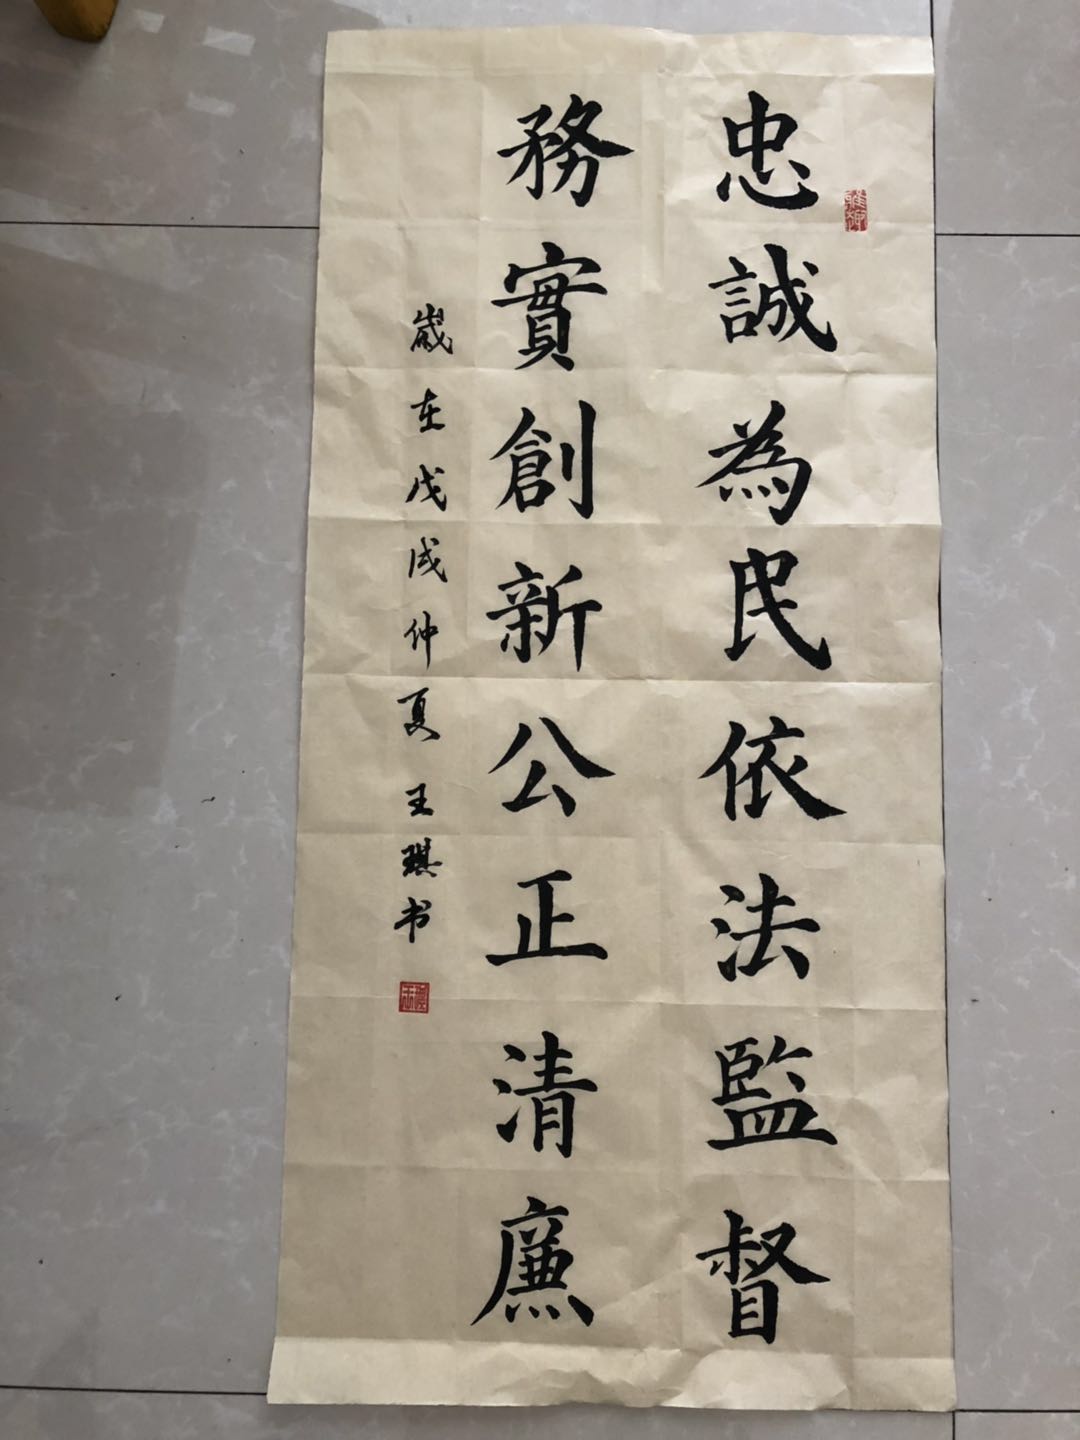 忠誠為民依法監督
務實創新公正清廉
歲在戊戌仲夏王琪书